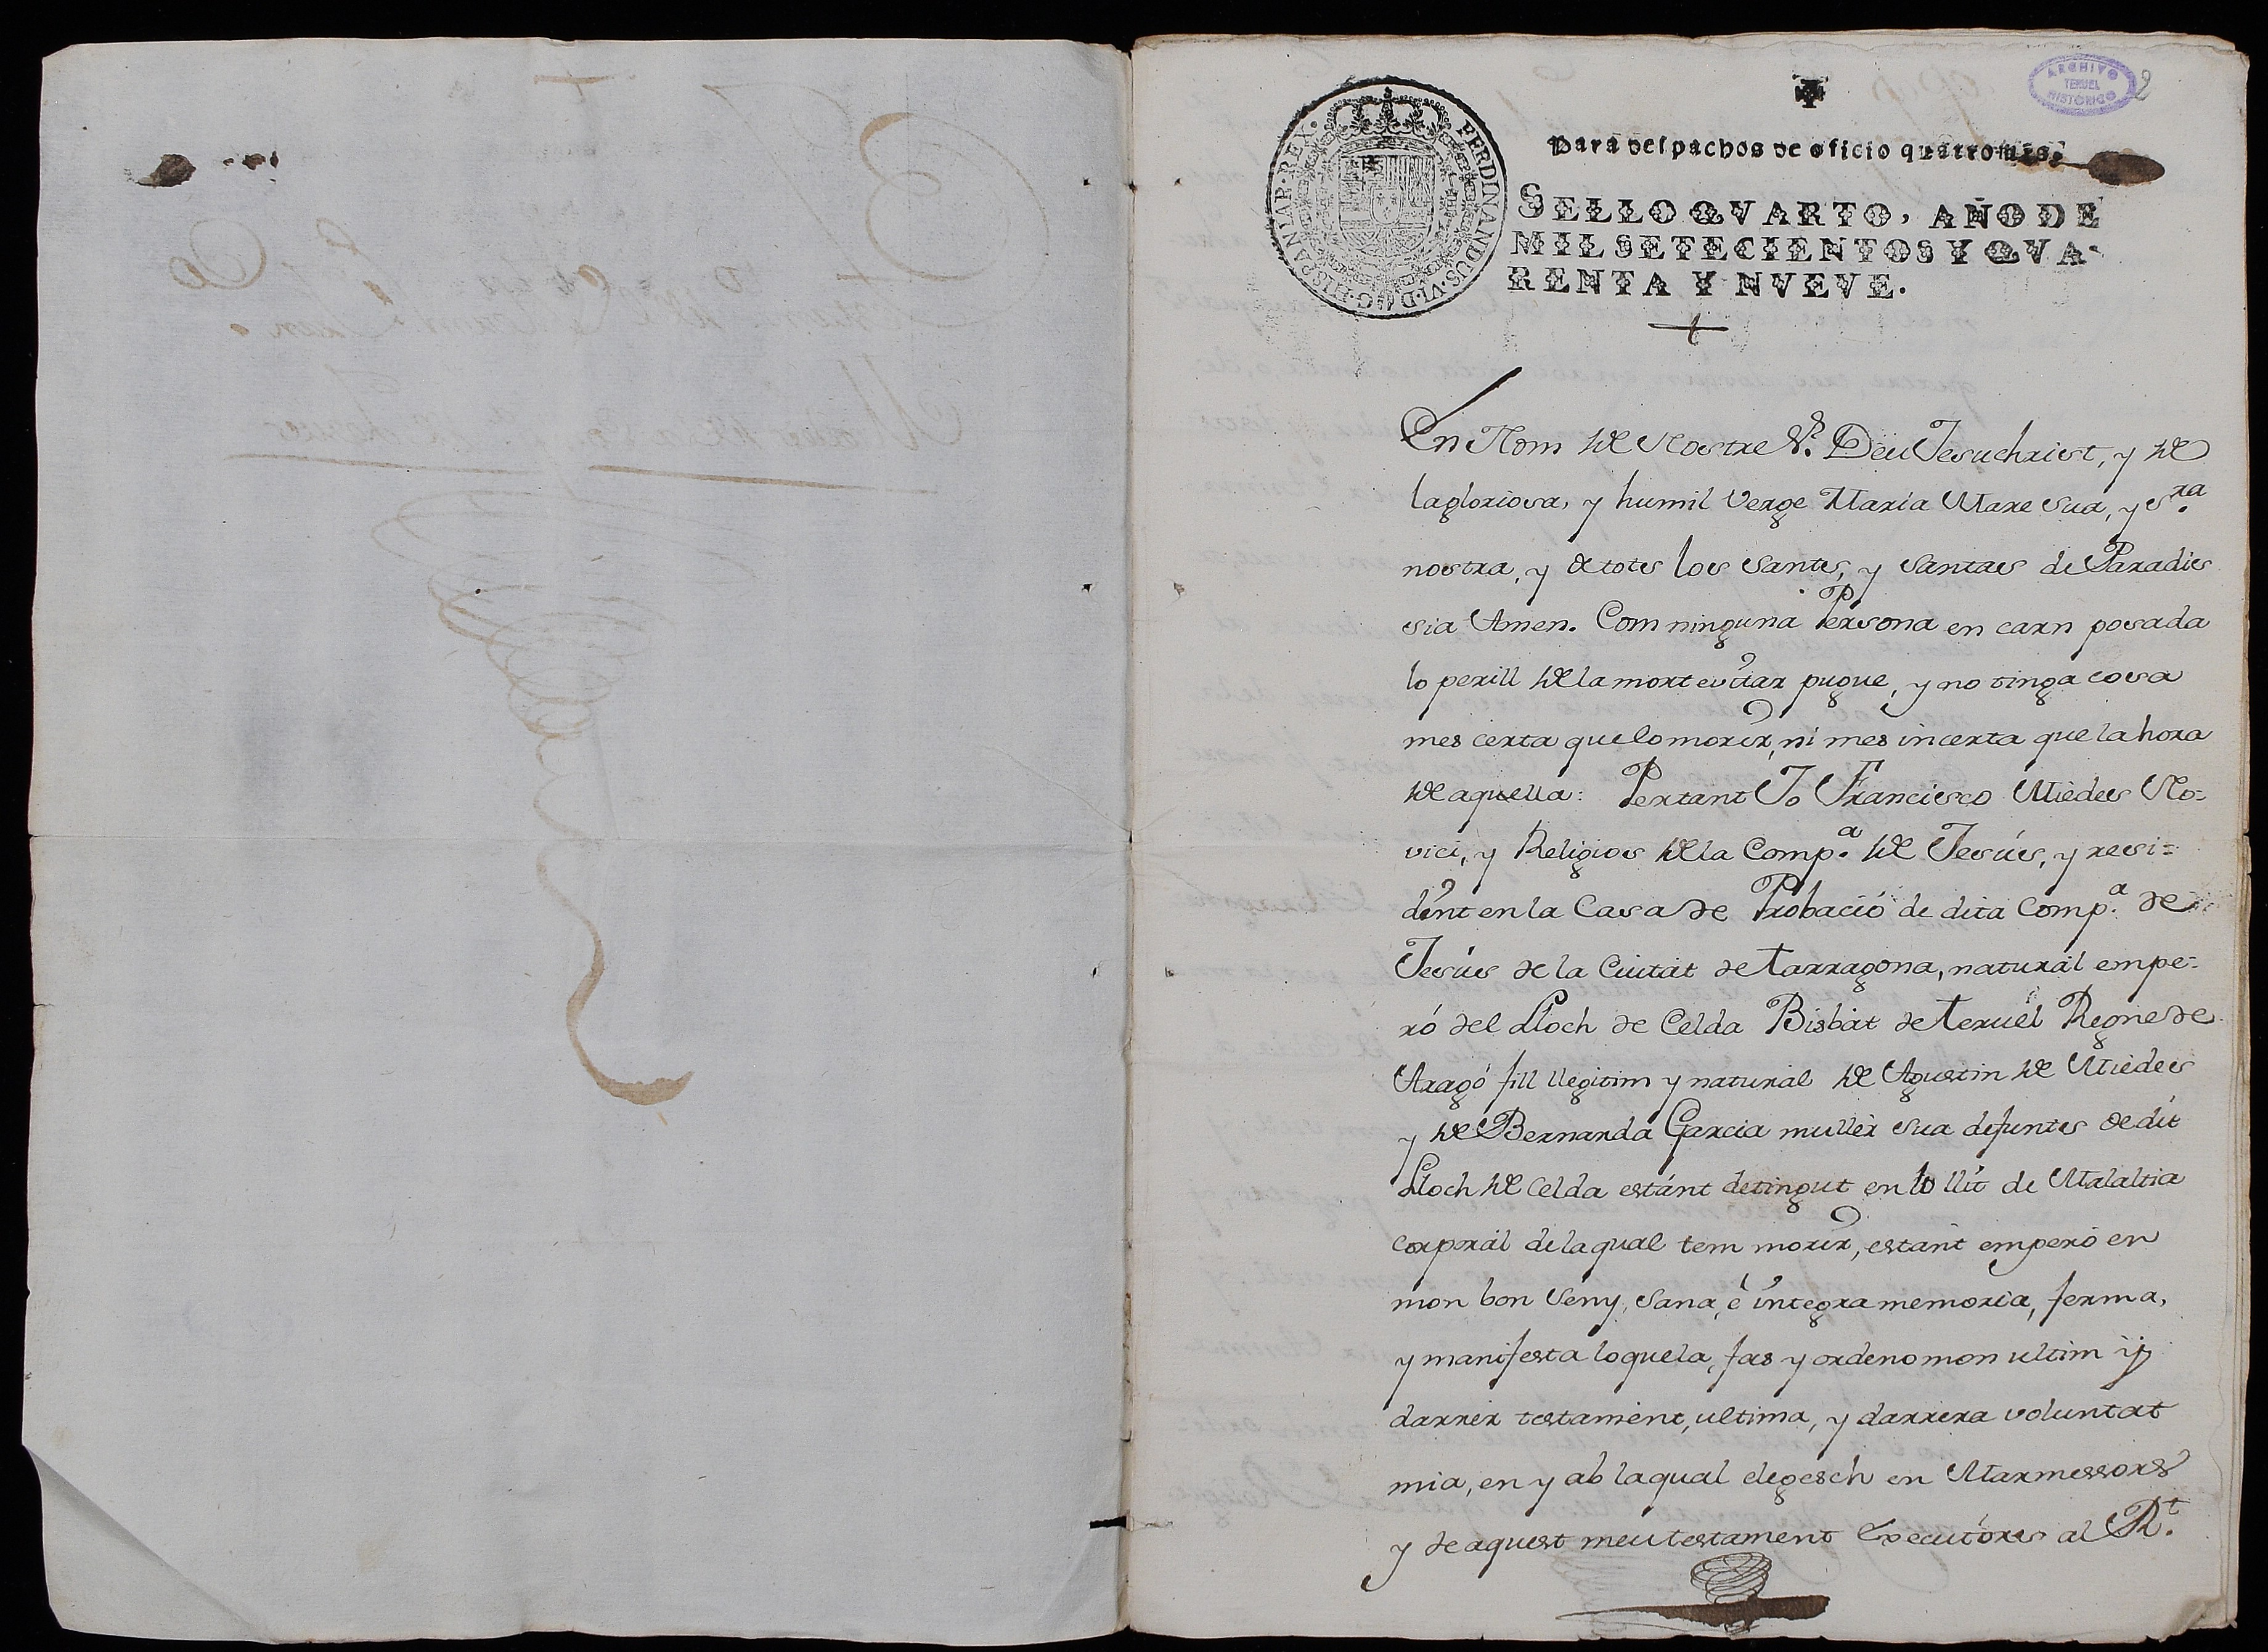 ARCHIVO
TERUEL
HISTORICO
2
FERDINANDUS·VI·D·G·HISPANIAR·REX·
Para despachos de oficio quatro mrs.
SELLO QVARTO, AÑO DE
MIL SETECIENTOS Y QVA-
RENTA Y NVEVE.
En Nom de Nostre Sr. Deu Jesuchrist, y de
la gloriosa, y humil Verge Maria Mare sua, y Sra.
nostra, y de tots los Sants, y Santas de Paradis
sia Amen. Com ninguna Persona en carn posada
lo perill de la mort evitar pugue, y no tinga cosa
mes certa que lo morir, ni mes incerta que la hora
de aquella: Pertant Jo Francisco Miedes No=
vici, y Religios de la Compa. de Jesús, y resi=
dent en la Casa de Probació de dita Compa. de
Jesús de la Ciutat de Tarragona, natural empe=
ró del Lloch de Celda Bisbat de Teruel Regne de
Aragó fill llegitim y natural de Agustin de Miedes
y de Bernarda Garcia muller sua defunts de dit
Lloch de Celda estánt detingut en lo llit de Malaltia
corporál de la qual tem morir, estant empero en
mon bon seny, sana, è integra memoria, ferma,
y manifesta loquela, fas y ordeno mon ultim y
darrer testament, ultima, y darrera voluntat
mia, en y ab la qual elegesch en Marmessors
y de aquest meu testament Executórs al Rt.